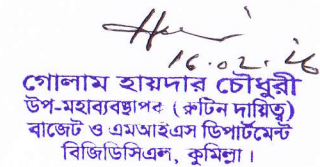 16.02.26
গোলাম হায়দার চৌধুরী
উপ-মহাব্যবস্থাপক (রুটিন দায়িত্ব)
বাজেট ও এমআইএস ডিপার্টমেন্ট
বিজিডিসিএল, কুমিল্লা।